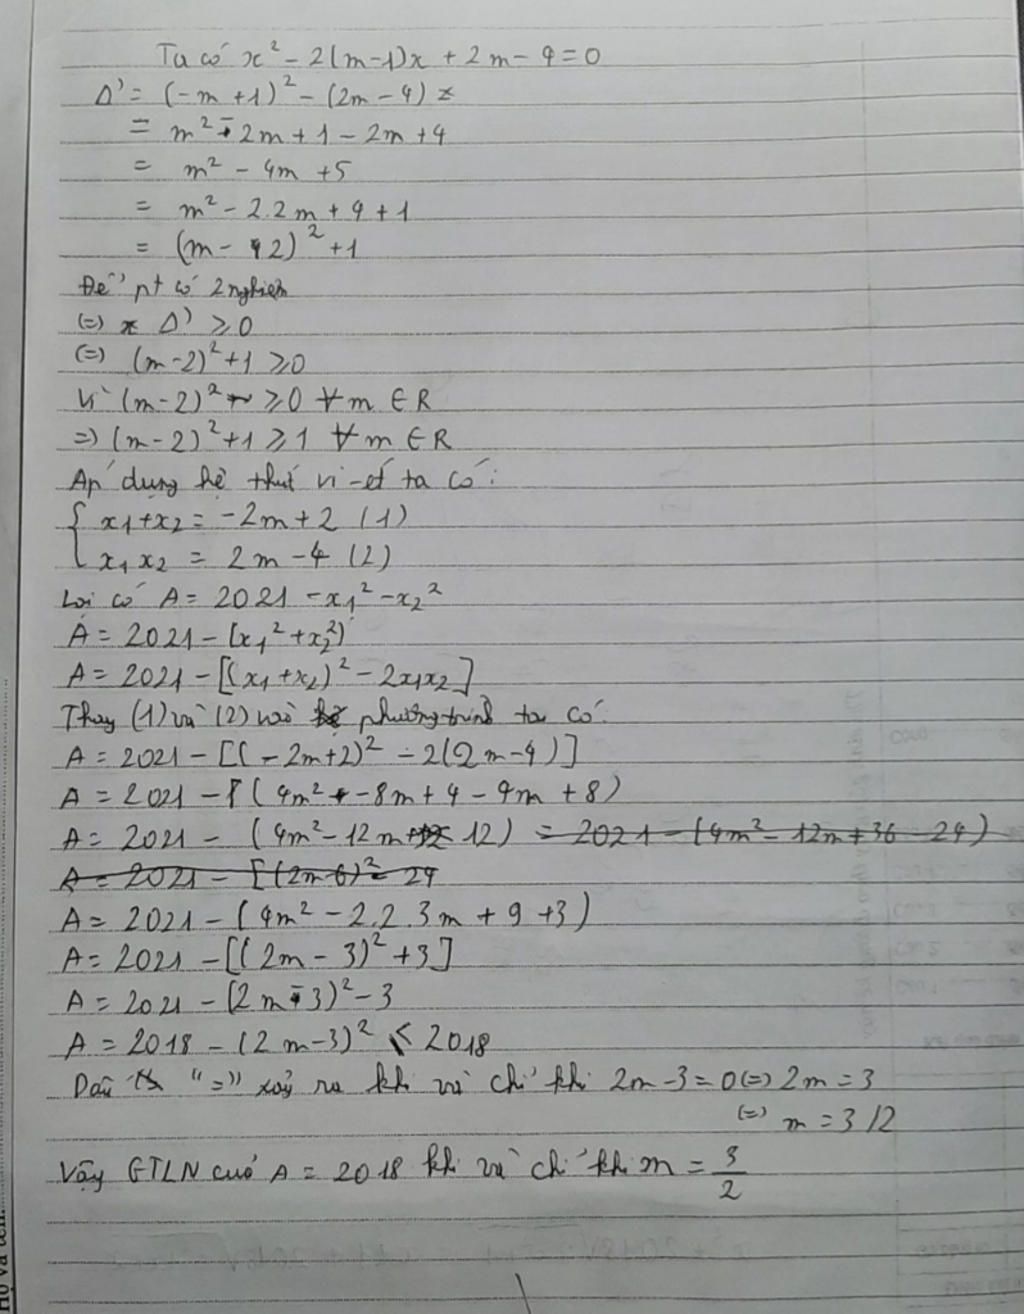 Ta có x² - 2(m-1)x + 2m - 4 = 0
Δ' = (-m + 1)² - (2m - 4)
= m² - 2m + 1 - 2m + 4
= m² - 4m + 5
= m² - 2.2m + 4 + 1
= (m - 2)² + 1
Để pt có 2 nghiệm
(=) Δ' ≥ 0
(=) (m-2)² + 1 ≥ 0
Vì (m-2)² ≥ 0 ∀m ∈ R
=> (m-2)² + 1 ≥ 1 ∀m ∈ R
Áp dụng hệ thức vi-ét ta có:
{ x1 + x2 = -2m + 2 (1)
x1 x2 = 2m - 4 (2)
Lại có A = 2021 - x1² - x2²
A = 2021 - (x1² + x2²)
A = 2021 - [(x1 + x2)² - 2x1x2]
Thay (1) và (2) vào phương trình ta có:
A = 2021 - [(-2m+2)² - 2(2m-4)]
A = 2021 - (4m² - 8m + 4 - 4m + 8)
A = 2021 - (4m² - 12m + 12) = 2021 - (4m² - 12m + 36 - 24)
A = 2021 - [(2m-6)² - 24
A = 2021 - (4m² - 2.2.3m + 9 + 3)
A = 2021 - [(2m - 3)² + 3]
A = 2021 - (2m - 3)² - 3
A = 2018 - (2m-3)² ≤ 2018
Dấu "=" xảy ra khi và chỉ khi 2m-3 = 0 (=) 2m = 3
(=) m = 3/2
Vậy GTLN của A = 2018 khi và chỉ khi m = 3/2
Họ và tên: